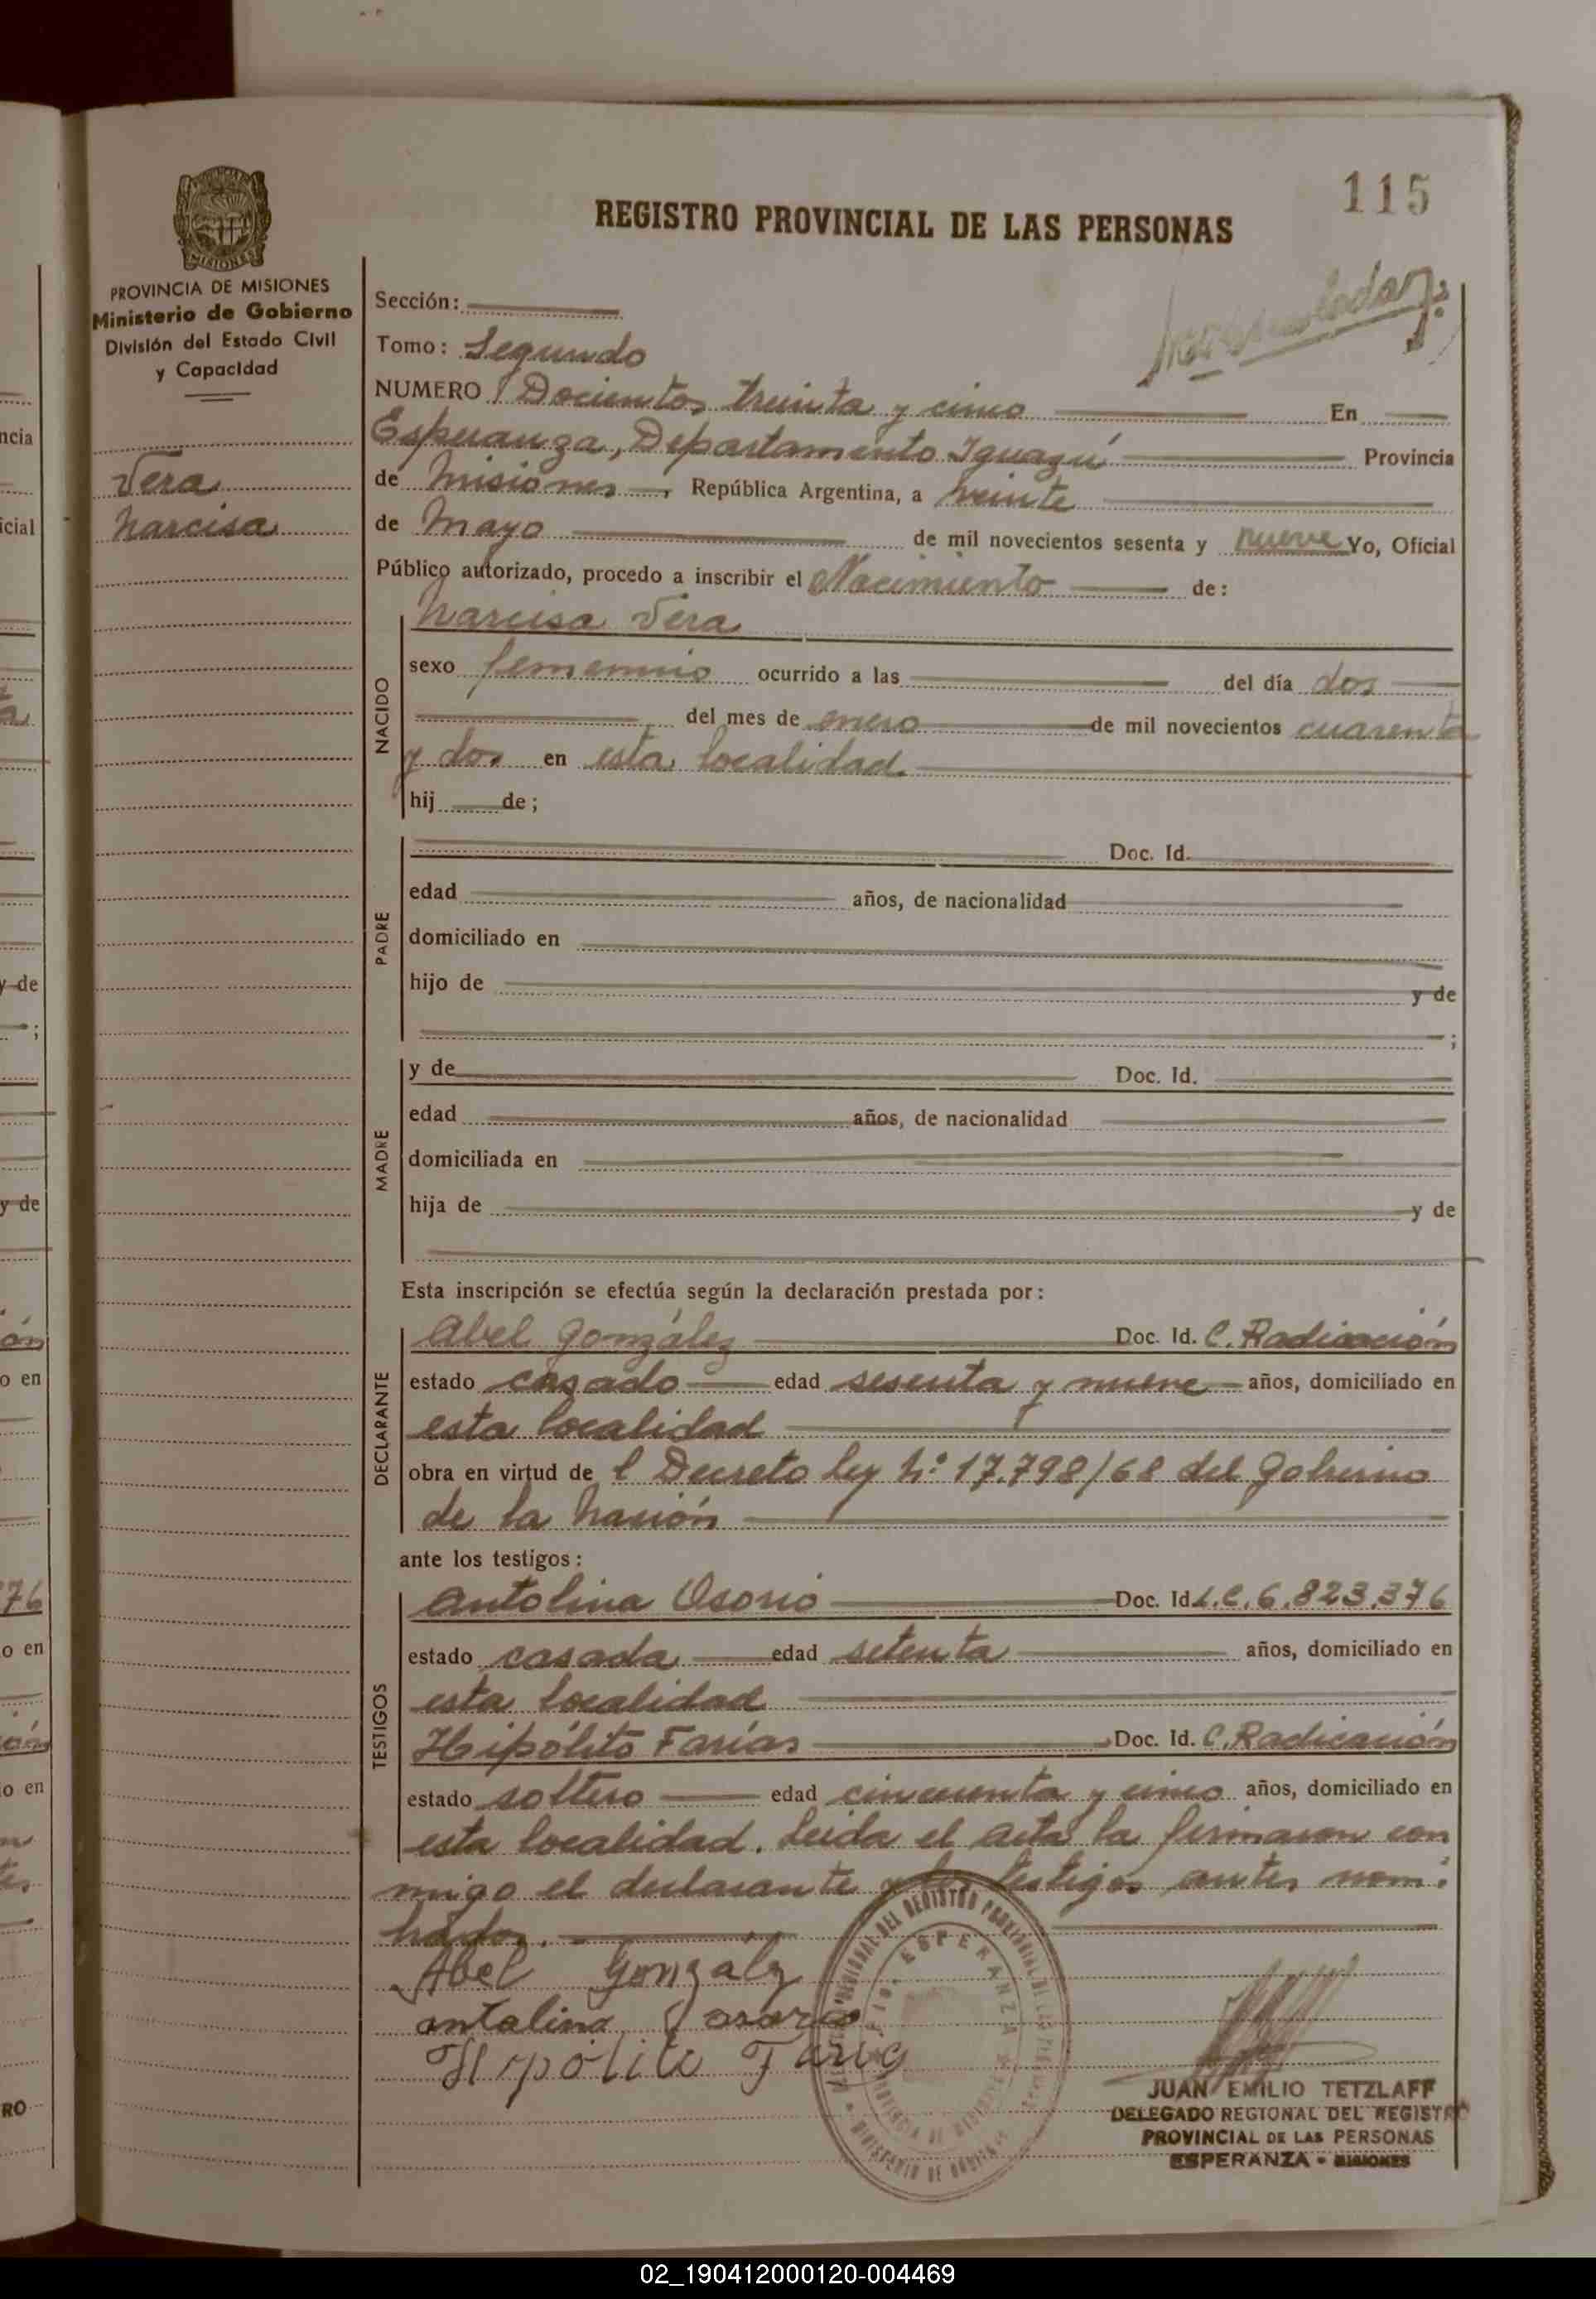 115
REGISTRO PROVINCIAL DE LAS PERSONAS
PROVINCIA DE MISIONES
Ministerio de Gobierno
División del Estado Civil
y Capacidad
Vera
Narcisa
Sección:
Tomo: Segundo
NUMERO Docientos treinta y cinco En
Esperanza, Departamento Iguazú Provincia
de Misiones, República Argentina, a veinte
de Mayo de mil novecientos sesenta y nueve Yo, Oficial
Público autorizado, procedo a inscribir el Nacimiento de:
NACIDO
Narcisa Vera
sexo femenino ocurrido a las del día dos
del mes de enero de mil novecientos cuarenta
y dos en esta localidad.
hij de;
PADRE
Doc. Id.
edad años, de nacionalidad
domiciliado en
hijo de y de
;
MADRE
y de Doc. Id.
edad años, de nacionalidad
domiciliada en
hija de y de
Esta inscripción se efectúa según la declaración prestada por:
DECLARANTE
Abel González Doc. Id. C. Radicación
estado casado edad sesenta y nueve años, domiciliado en
esta localidad
obra en virtud de l Decreto ley N° 17.798/68 del Gobierno
de la Nación
ante los testigos:
TESTIGOS
Antolina Osorio Doc. Id. L.C. 6.823.376
estado casada edad setenta años, domiciliado en
esta localidad
Hipólito Farías Doc. Id. C. Radicación
estado soltero edad cincuenta y cinco años, domiciliado en
esta localidad. Leida el acta la firmaron con
migo el declarante y los testigos antes nom:
brados.
Abel Gonzalz
antalina osorio
Hipólito Faria
ESPERANZA
JUAN EMILIO TETZLAFF
DELEGADO REGIONAL DEL REGISTRO
PROVINCIAL DE LAS PERSONAS
ESPERANZA - MISIONES
ncia
icial
y de
;
y de
ón
o en
76
o en
o en
RO
02_190412000120-004469